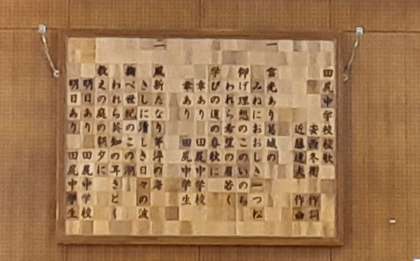 田尻中学校校歌
安西冬衛 作詞
近藤 作曲
一
雲光あり葛城の
みねにおおしき一つ松
仰げ理想のこのいのち
われら希望の眉若く
学びの道の春秋に
幸あり 田尻中学校
幸あり 田尻中学生
二
風新たなり茅渟の海
きしに清しき日々の波
世紀のこの潮
われら英知の耳さとく
教えの庭の朝夕に
明日あり 田尻中学校
明日あり 田尻中学生